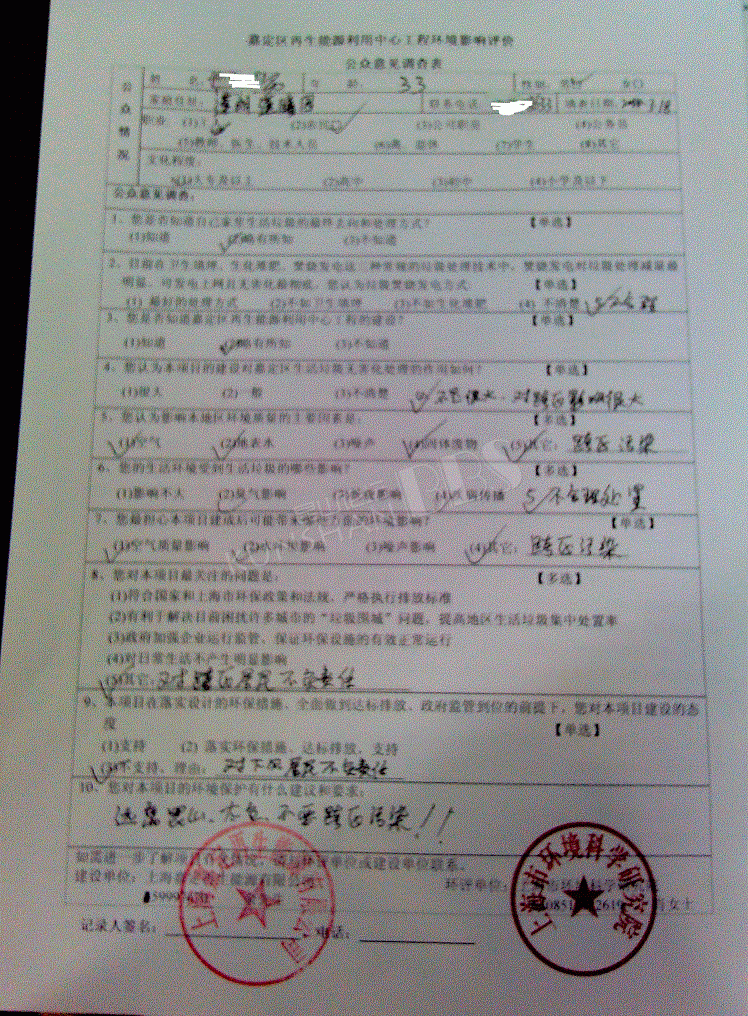 嘉定区再生能源利用中心工程环境影响评价
公众意见调查表
公众情况
姓 名: 年 龄: 33 性别: 男 女
家庭住址: 联系电话: 填表日期:
职业: (1)工 (2)农民 (3)公司职员 (4)公务员
(5)教师、医生、技术人员 (6)离、退休 (7)学生 (8)其它
文化程度:
(1)大专及以上 (2)高中 (3)初中 (4)小学及以下
公众意见调查:
1、您是否知道自己家里生活垃圾的最终去向和处理方式? 【单选】
(1)知道 (2)略有所知 (3)不知道
2、目前在卫生填埋、生化堆肥、焚烧发电这三种常规的垃圾处理技术中,焚烧发电对垃圾处理减量最
明显,可发电上网且无害化最彻底,您认为垃圾焚烧发电方式: 【单选】
(1) 最好的处理方式 (2)不如卫生填埋 (3)不如生化堆肥 (4) 不清楚
3、您是否知道嘉定区再生能源利用中心工程的建设? 【单选】
(1)知道 (2)略有所知 (3)不知道
4、您认为本项目的建设对嘉定区生活垃圾无害化处理的作用如何? 【单选】
(1)很大 (2)一般 (3)不清楚 不是很大,对跨区影响很大
5、您认为影响本地区环境质量的主要因素是: 【多选】
(1)空气 (2)地表水 (3)噪声 (4)固体废物 (5)其它: 跨区污染
6、您的生活环境受到生活垃圾的哪些影响? 【多选】
(1)影响不大 (2)臭气影响 (3)视观影响 (4)疾病传播 5 不合理处置
7、您最担心本项目建成后可能带来哪些方面的环境影响? 【单选】
(1)空气质量影响 (2)水环境影响 (3)噪声影响 (4)其它: 跨区污染
8、您对本项目最关注的问题是: 【多选】
(1)符合国家和上海市环保政策和法规,严格执行排放标准
(2)有利于解决目前困扰许多城市的“垃圾围城”问题,提高地区生活垃圾集中处置率
(3)政府加强企业运行监管、保证环保设施的有效正常运行
(4)对日常生活不产生明显影响
(5)其它: 对跨区居民不负责任
9、本项目在落实设计的环保措施、全面做到达标排放、政府监管到位的前提下,您对本项目建设的态
度 【单选】
(1)支持 (2) 落实环保措施、达标排放,支持
(3)不支持,理由: 对下风居民不负责任
10、您对本项目的环境保护有什么建议和要求:
远离昆山、太仓、不要跨区污染!!
如需进一步了解项目 请与环评单位或建设单位联系。
建设单位: 上海 再生能源有限公司 环评单位: 上海市环境科学研究院
女士
记录人签名: 电话:
上海市环境科学研究院